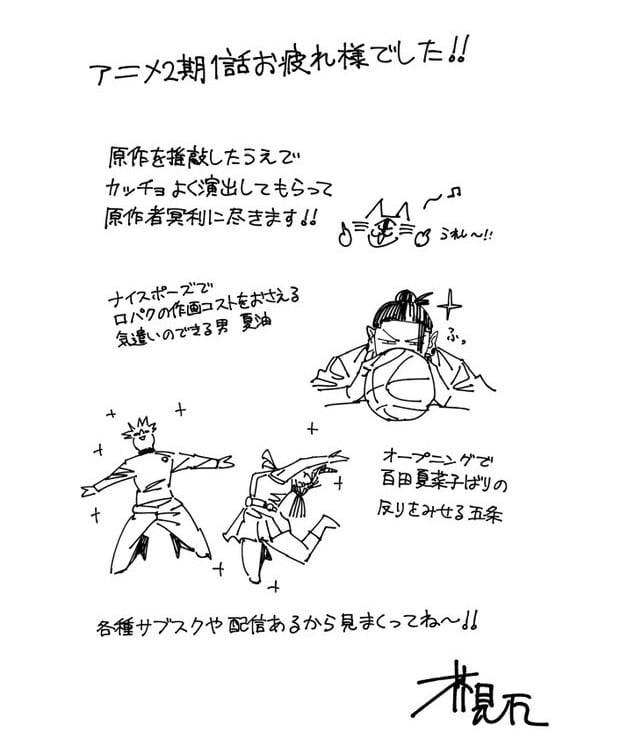 アニメ2期1話お疲れ様でした!!
原作を推敲したうえで
カッチョよく演出してもらって
原作者冥利に尽きます!!
〜♫
うれし〜!!
ナイスポーズで
口パクの作画コストをおさえる
気遣いのできる男 夏油
ふっ
オープニングで
百田夏菜子ばりの
反りをみせる五条
各種サブスクや配信あるから見まくってね〜!!